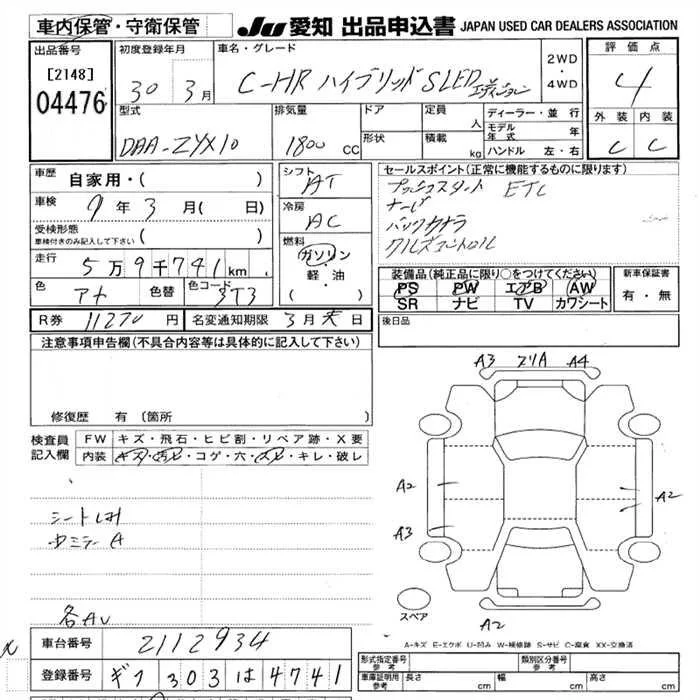 車内保管・守衛保管
JU 愛知 出品申込書 JAPAN USED CAR DEALERS ASSOCIATION
出品番号
[2148]
04476
初度登録年月
30 3月
車名・グレード
C-HR ハイブリッド SLED エディション
2WD
・
4WD
評価点
4
外装 内装
C C
型式
DAA-ZYX10
排気量
1800 CC
ドア
形状
定員 人
積載 kg
ディーラー・並行
モデル年式 年
ハンドル 左・右
車歴
自家用・( )
車検
9年3月( 日)
受検形態
車検付きのみ記入して下さい ( )
走行
5万9千741km
色
アオ
色替
色コード
3T3
シフト
AT
冷房
AC
燃料
ガソリン
・軽・油
( )
セールスポイント(正常に機能するものに限ります)
プッシュスタート ETC
ナービ
バックカメラ
クルーズコントロール
装備品(純正品に限り○をつけてください)
PS PW エアB AW
SR ナビ TV カワシート
新車保証書
有・無
R券 11270円
名変通知期限 3月末日
後日品
注意事項申告欄(不具合内容等は具体的に記入して下さい)
修復歴 有(箇所 )
検査員記入欄
FW キズ・飛石・ヒビ割・リペア跡・X要
内装 キズ・汚レ・コゲ・穴・スレ・キレ・破レ
シート
ミラーA
各AU
A3 スリA A4
A2
A3
A2
A2
スペア
A-キズ E-エクボ U-凹み W-補修跡 S-サビ C-腐食 XX-交換済
車台番号 2112934
登録番号 ギフ 303 は 4741
形式指定番号
類別区分番号
車庫証明参考 長さ cm 幅 cm 高さ cm